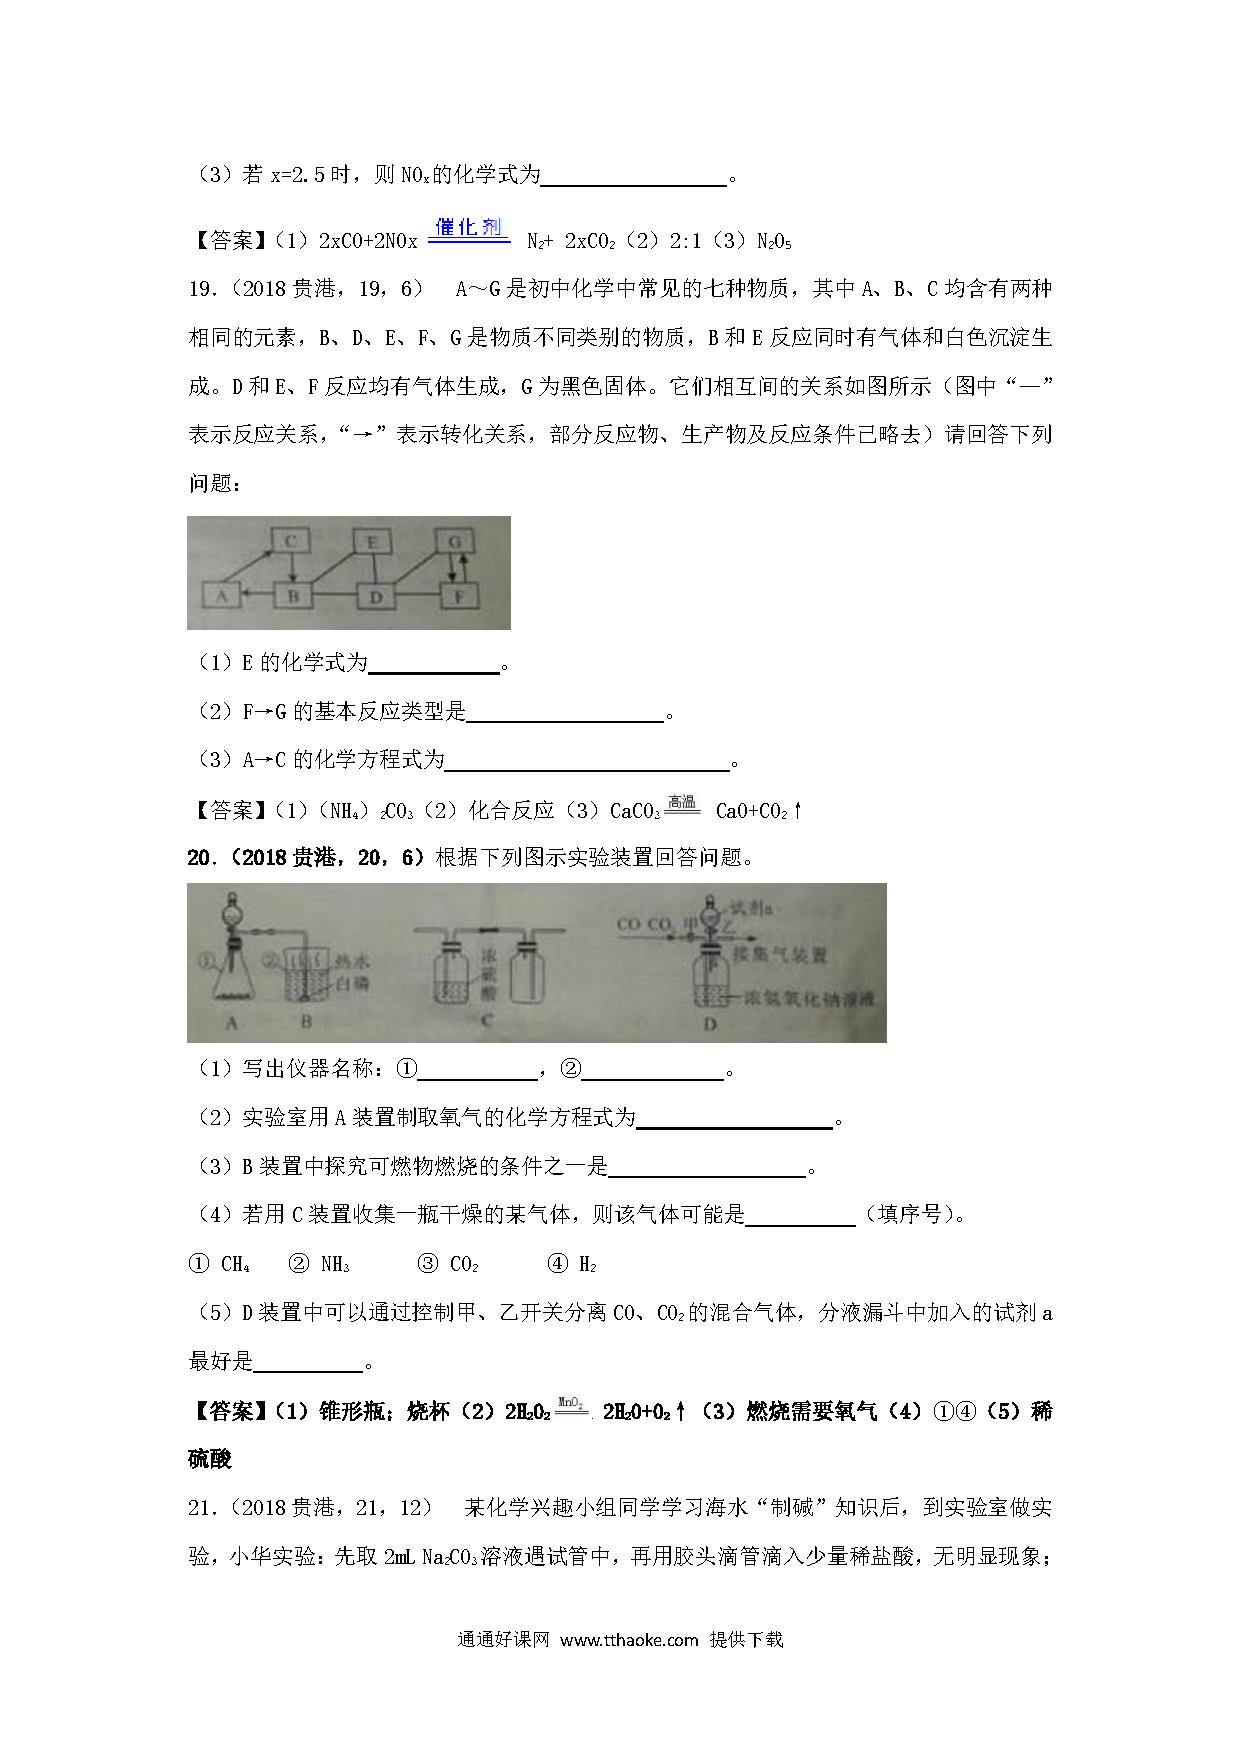 （3）若 x=2.5 时，则 NOₓ的化学式为                。
【答案】（1）2xCO+2NOx 催化剂 N₂+ 2xCO₂（2）2:1（3）N₂O₅
19.（2018 贵港，19，6） A～G 是初中化学中常见的七种物质，其中 A、B、C 均含有两种
相同的元素，B、D、E、F、G 是物质不同类别的物质，B 和 E 反应同时有气体和白色沉淀生
成。D 和 E、F 反应均有气体生成，G 为黑色固体。它们相互间的关系如图所示（图中“—”
表示反应关系，“→”表示转化关系，部分反应物、生产物及反应条件已略去）请回答下列
问题：
C E G
A B D F
（1）E 的化学式为            。
（2）F→G 的基本反应类型是                  。
（3）A→C 的化学方程式为                          。
【答案】（1）（NH₄）₂CO₃（2）化合反应（3）CaCO₃ 高温 CaO+CO₂↑
20.（2018 贵港，20，6）根据下列图示实验装置回答问题。
试剂a
CO CO₂ 甲 乙
① ② 热水 浓硫酸 接集气装置
白磷 浓氢氧化钠溶液
A B C D
（1）写出仪器名称：①           ，②             。
（2）实验室用 A 装置制取氧气的化学方程式为                  。
（3）B 装置中探究可燃物燃烧的条件之一是                  。
（4）若用 C 装置收集一瓶干燥的某气体，则该气体可能是          （填序号）。
① CH₄ ② NH₃ ③ CO₂ ④ H₂
（5）D 装置中可以通过控制甲、乙开关分离 CO、CO₂的混合气体，分液漏斗中加入的试剂 a
最好是          。
【答案】（1）锥形瓶；烧杯（2）2H₂O₂ MnO₂ 2H₂O+O₂↑（3）燃烧需要氧气（4）①④（5）稀
硫酸
21.（2018 贵港，21，12） 某化学兴趣小组同学学习海水“制碱”知识后，到实验室做实
验，小华实验：先取 2mL Na₂CO₃溶液遇试管中，再用胶头滴管滴入少量稀盐酸，无明显现象；
通通好课网 www.tthaoke.com 提供下载